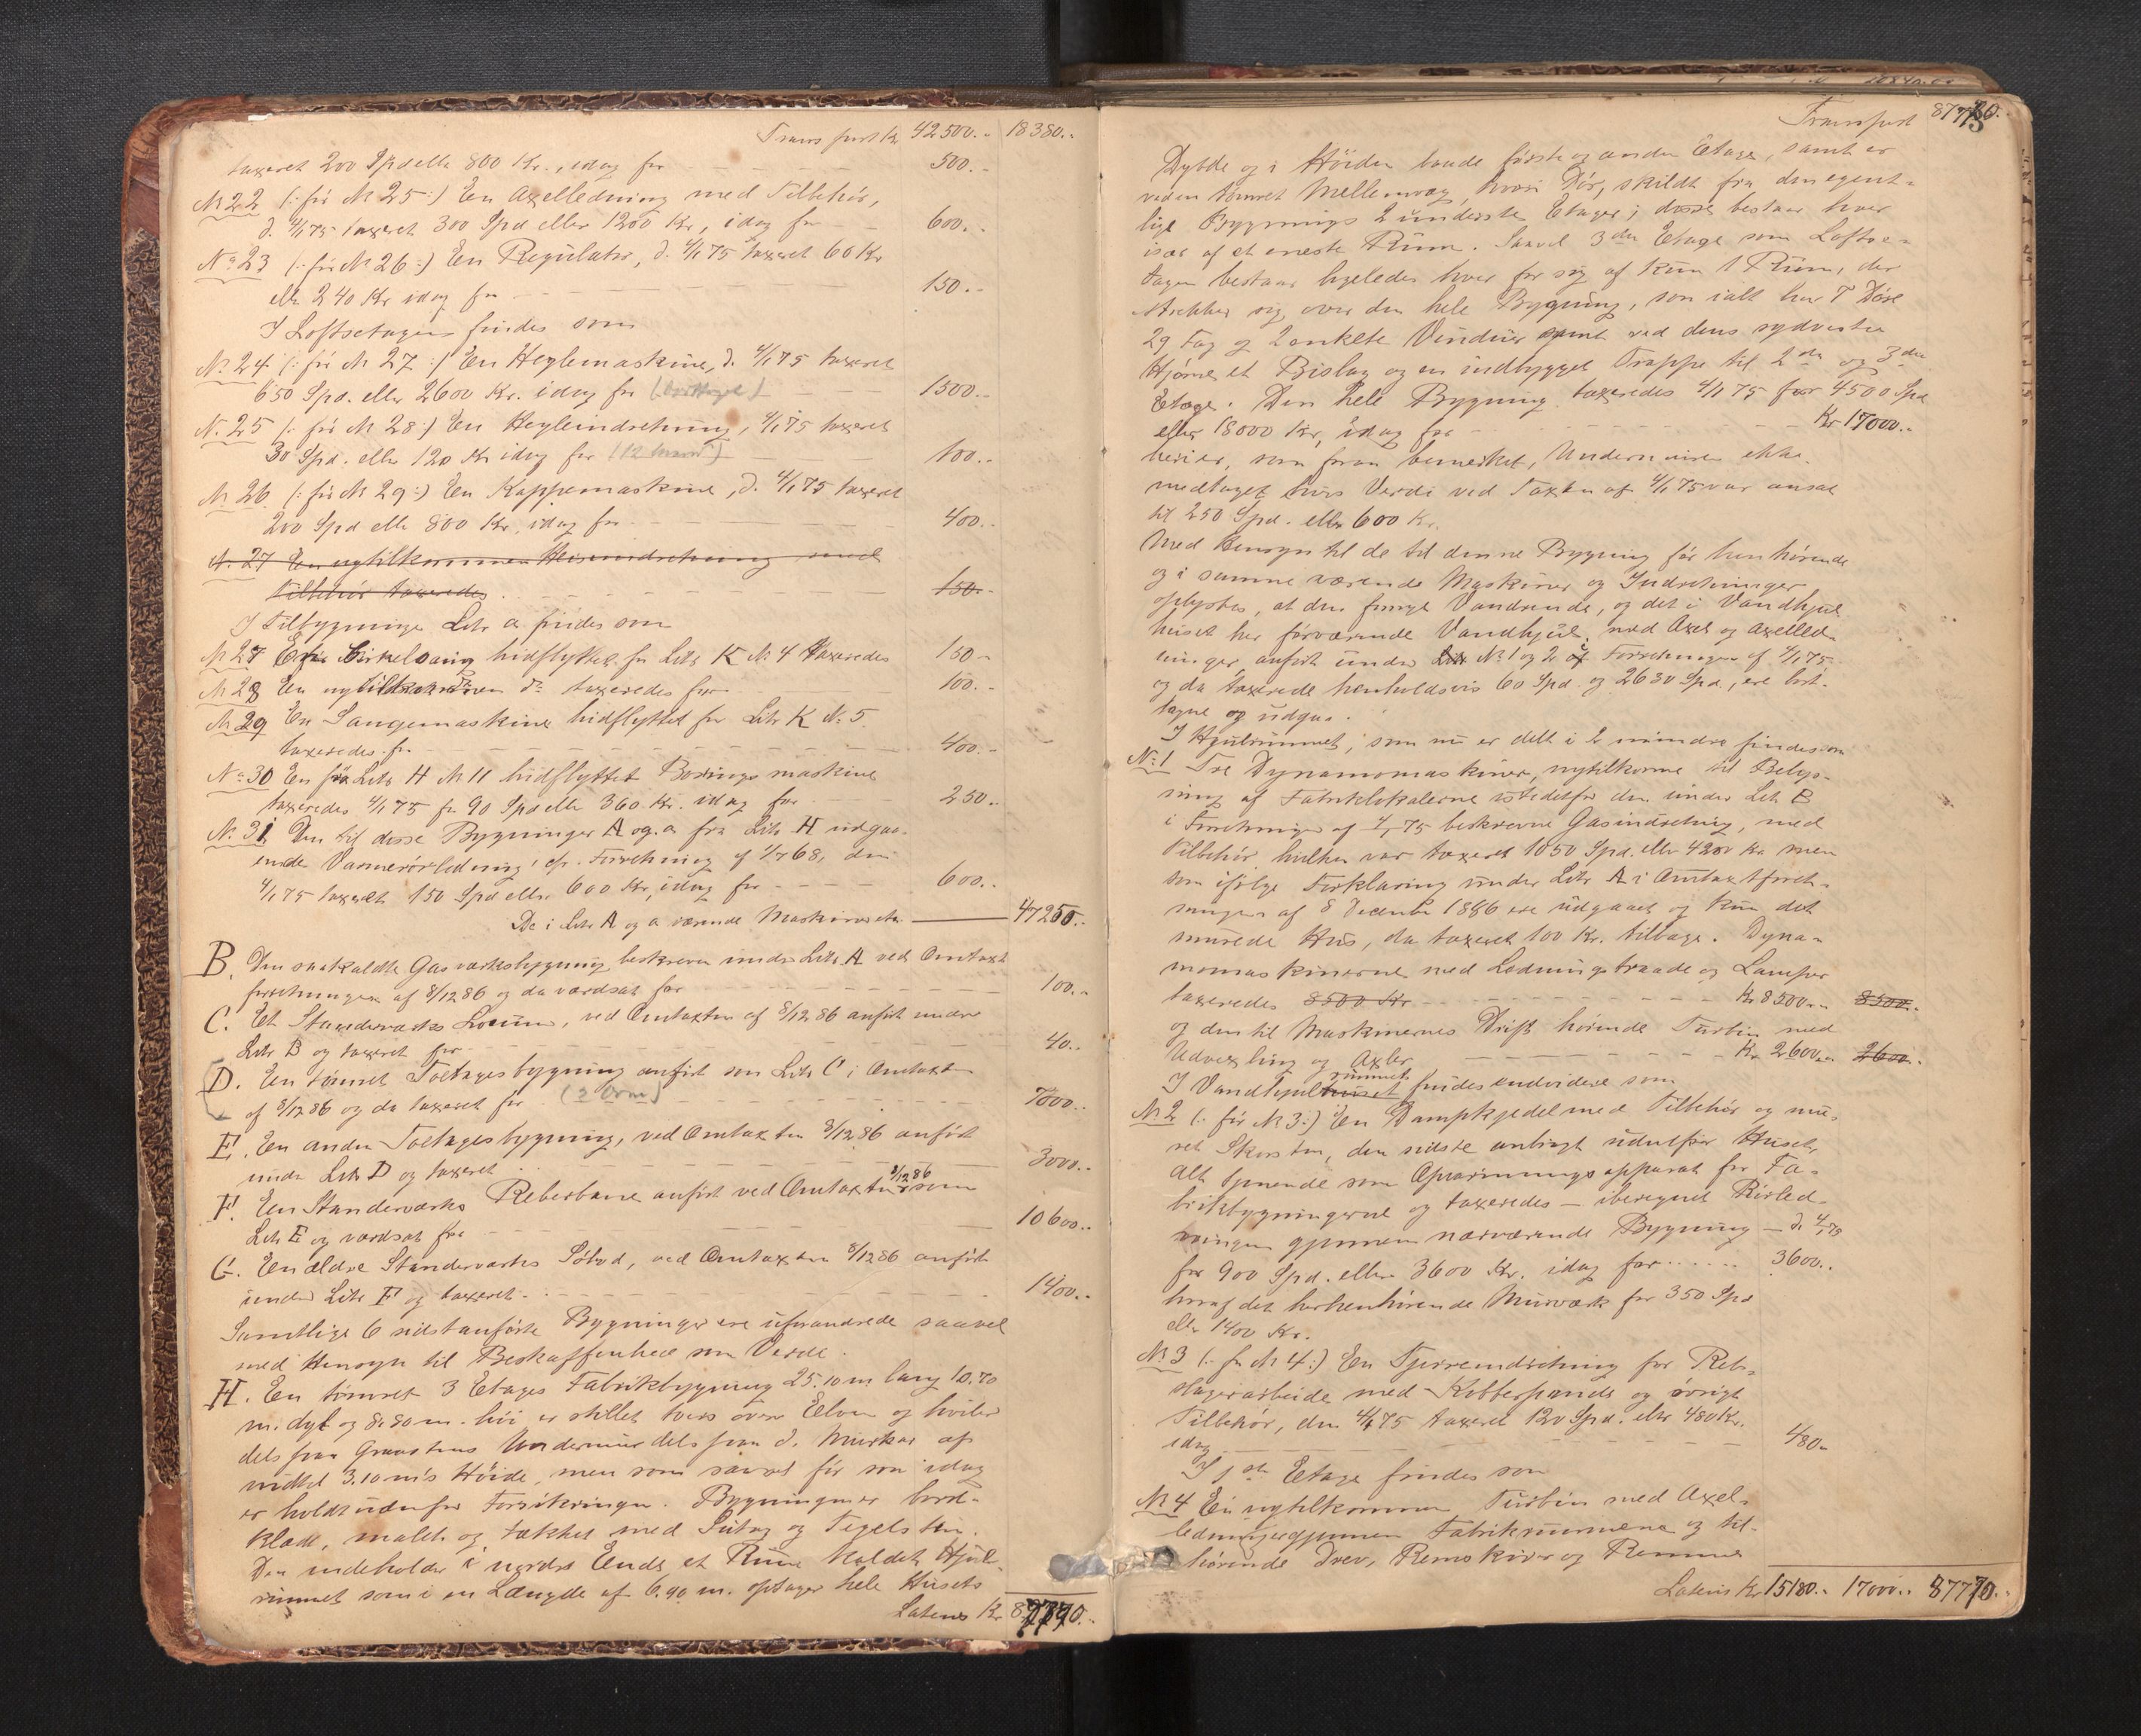 Transport Kr 42500.. 18380..
taxeret 200 Spd eller 800 Kr., idag for 500..
No 22 (: før No 25 :) En Axelledning med Tilbehør,
d. 4/1 75 taxeret 300 Spd eller 1200 Kr, idag for 600..
No 23 (: før No 26 :) En Regulator, d. 4/1 75 taxeret 60 Kr
eller 240 Kr idag for 150..
I Loftsetagen findes som
No 24 (: før No 27 :) En Heglemaskine, d. 4/1 75 taxeret
650 Spd. eller 2600 Kr. idag for 1500..
No 25 (: før No 28 :) En Hegleindretning, 4/1 75 taxeret
30 Spd. eller 120 Kr idag for 100..
No 26 (: før No 29 :) En Kappemaskine, d. 4/1 75 taxeret
200 Spd eller 800 Kr, idag for 400..
No 27 En nytilkommen Heiseindretning med
Tilbehør taxeredes 150..
I Tilbygningen Litr a findes som
No 27 En Cirkelsaug hidflyttet fra Litr K No 4 taxeredes 150..
No 28 En nytilkommen do taxeredes for 100..
No 29 En Saugemaskine hidflyttet fra Litr K No 5.
taxeredes for 400..
No 30 En fra Litr H No 11 hidflyttet Boringsmaskine
taxeredes 4/1 75 for 90 Spd eller 360 Kr. idag for 250..
No 31 Den til disse Bygninger A og a fra Litr H udgaa-
ende Varmerørledning, cfr. Forretning af 1/7 68, den
4/1 75 taxeret 150 Spd eller 600 Kr, idag for 600..
De i Litr A og a værende Maskiner etc 47250..
B. Den saakaldte Gasværksbygning beskreven under Litr A ved Omtaxt
forretningen af 8/12 86 og da værdsat for 100..
C. Et Standerværks Locum, ved Omtaxten af 8/12 86 anført under
Litr B og taxeret for 40..
D. En tømret Toetagesbygning anført som Litr C i Omtaxten
af 8/12 86 og da taxeret for 7000..
E. En anden Toetagesbygning, ved Omtaxten 8/12 86 anført
under Litr D og taxeret 3000..
F. En Standerværks Reberbane anført ved Omtaxten 8/12 86 som
Litr E og værdsat for 10600..
G. En ældre Standerværks Søbod, ved Omtaxten 8/12 86 anført
under Litr F og taxeret 1400..
Samtlige 6 sidstanførte Bygninger ere uforandrede saavel
med Hensyn til Beskaffenhed som Værdi.
H. En tømret 3 Etages Fabrikbygning 25.10 m lang 10.70
m. dyb og 8.80 m. høi er stillet tvers over Elven og hviler
dels paa Graastens Undermur dels paa d. Murkar af
indtil 3.10 m's Høide, men som saavel før som idag
er holdt udenfor Forsikringen. Bygningen er bord-
klædt, malet og tækket med Sutag og Tegelsten.
Den indeholder i nordre Ende et Rum kaldet Hjul-
rummet som i en Længde af 6.90 m. optager hele Husets
Lateris Kr 87770..
Transport 87770..
Dybde og i Høiden baade første og anden Etage, samt er
ved en tømret Mellemvæg, hvori Dør, skildt fra den egent-
lige Bygnings 2 underste Etager; disse bestaar hver
især af et eneste Rum. Saavel 3die Etage som Loftse-
tagen bestaar ligeledes hver for sig af kun 1 Rum, der
strekker sig over den hele Bygning, som ialt har 7 Døre
29 Fag og 2 enkelte Vinduer samt ved dens sydvestre
Hjørne et Bislag og en indbygget Trappe til 2den og 3die
Etage. Den hele Bygning taxeredes 4/1 75 for 4500 Spd
eller 18000 Kr, idag for Kr 17000..
heri er, som foran bemerket, Undermuren ikke
medtaget, hvis Verdi ved Taxten af 4/1 75 var ansat
til 250 Spd. eller 600 Kr.
Med Hensyn til de til denne Bygning før henhørende
og i samme værende Maskiner og Indretninger
oplystes, at den forrige Vandrende, og det i Vandhjul
huset her forværende Vandhjul, med Axel og Axelled-
ninger, anført under No 1 og 2 af Forretningen af 4/1 75
og da taxerede henholdsvis 60 Spd. og 2630 Spd., ere bort-
tagne og udgaa.
I Hjulrummet, som nu er delt i 2 mindre findes som
No 1 Tre Dynamomaskiner, nytilkomne til Belys-
ning af Fabriklokalerne istedetfor den under Litr B
i Forretningen af 4/1 75 beskrevne Gasindretning, med
Tilbehør, hvilken var taxeret 1050 Spd. eller 4200 Kr men
som ifølge Forklaring under Litr A i Omtaxtforret-
ningen af 8 December 1886 ere udgaaet og kun det
murede Hus, da taxeret 100 Kr. tilbage. Dyna-
momaskinerne med Ledningstraade og Lamper
taxeredes 8500 Kr Kr 8500.. 8500..
og den til Maskinernes Drift hørende Turbin med
Udvexling og Axler Kr 2600.. 2600..
I Vandhjulhuset rummet findes endvidere som
No 2 (: før No 3 :) En Dampkjedel med Tilbehør og mu-
ret Skorsten, den sidste anbragt udenfor Huset
alt tjenende som Opvarmningsapparat for Fa-
brikbygningerne og taxeredes – iberegnet Rørled-
ningen gjennem nærværende Bygning – d. 4/1 75
for 900 Spd. eller 3600 Kr. idag for 3600..
hvoraf det herhenhørende Murværk for 350 Spd
eller 1400 Kr.
No 3 (: før No 4 :) En Tjæreindretning for Reb-
slagerarbeide med Kobberpande og øvrigt
Tilbehør, den 4/1 75 taxeret 120 Spd. eller 480 Kr.
idag 480..
I 1ste Etage findes som
No 4 En nytilkommen Turbin med Axel-
ledninger gjennem Fabrikrummene og til-
hørende Drev, Remskiver og Remmer
Lateris Kr 15180.. 17000.. 87770..